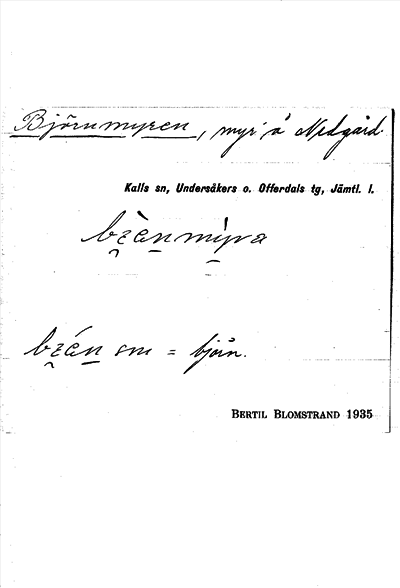 Björnmyren, myr å Nedgård.
Kalls sn, Undersåkers o. Offerdals tg, Jämtl. l.
bz̯èn̠mỳra
bz̯én̠ sm = björn.
BERTIL BLOMSTRAND 1935